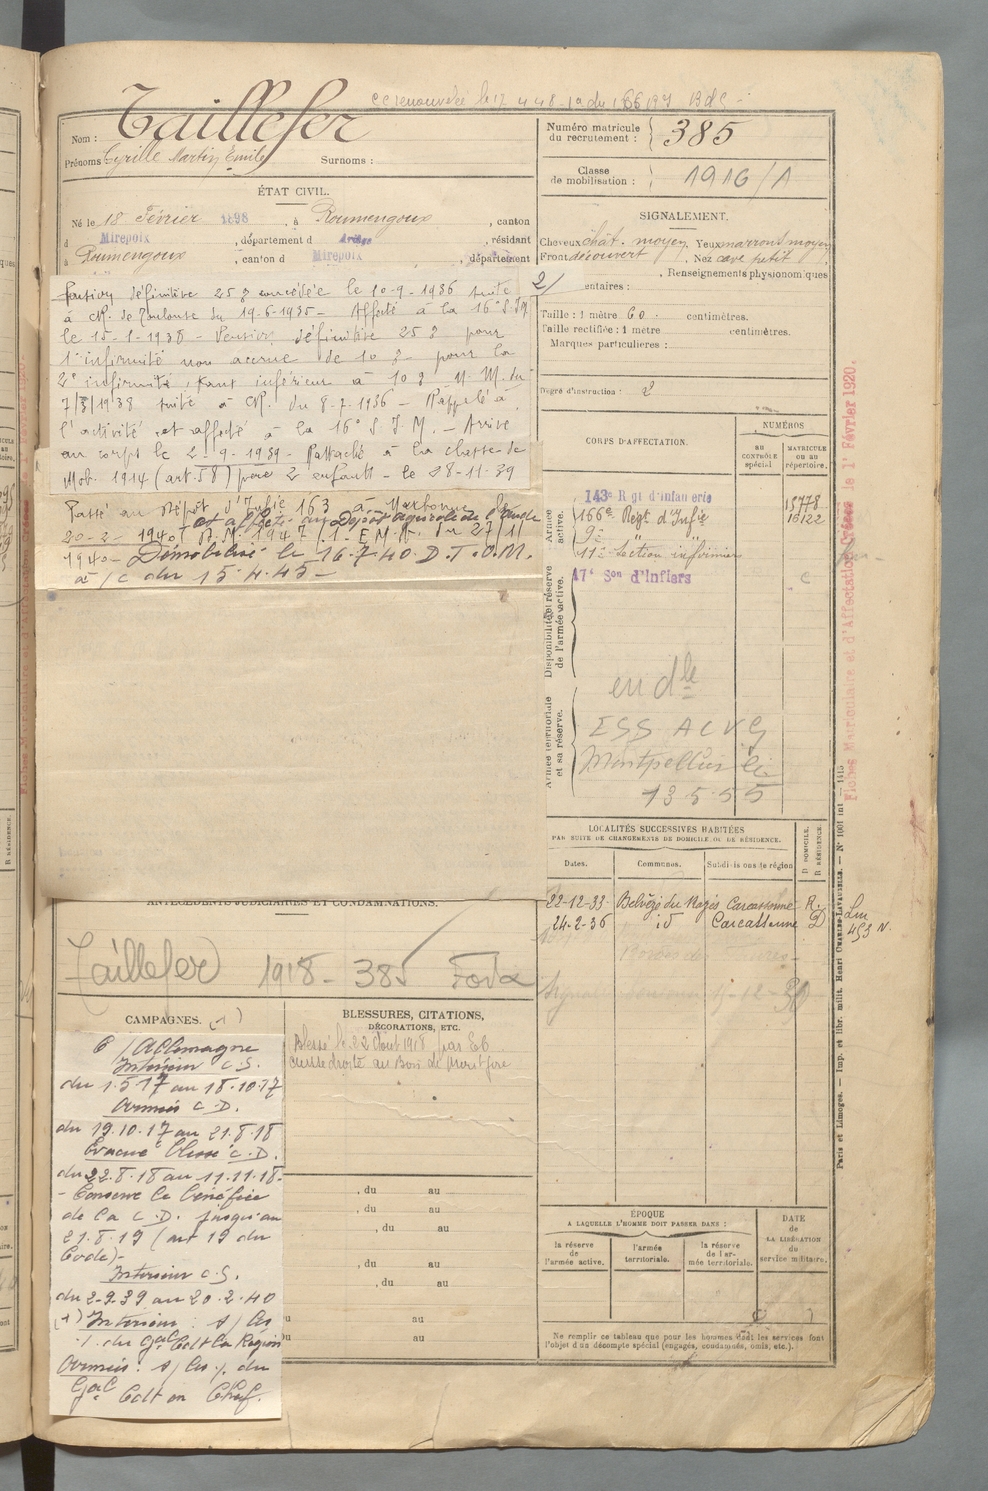 Taillefer
Nom :
Prénoms Cyrille Martin Emile Surnoms :
Numéro matricule du recrutement : 385
Classe de mobilisation : 1916/1
ÉTAT CIVIL.
Né le 18 Février 1898, à Roumengoux, canton
d Mirepoix, département d Ariège, résidant
à Roumengoux, canton d Mirepoix, département
SIGNALEMENT.
Cheveux chât. moyen, Yeux marrons moyen
Front découvert, Nez cave petit
, Renseignements physionomiques
entaires :
Taille : 1 mètre 60 centimètres.
Taille rectifiée : 1 mètre centimètres.
Marques particulières :
Degré d'instruction : 2
2/
Pension définitive 25 % concédée le 10-9-1936 suite
à CR. de Toulouse du 19-6-1935 - Affecté à la 16e S.I.M
le 15-1-1938 - Pension définitive 25 % pour
1e infirmité non accrue de 10 % - pour la
2e infirmité, taux inférieur à 10 %
7/3/1938 suite à CR. du 8-7-1936 - Rappelé à
l'activité et affecté à la 16e S I M. - Arrivé
au corps le 2-9-1939 - Rattaché à la classe de
Mob. 1914 (art. 58) père 2 enfants - le 28-11-39
Passé au Dépôt d'Infie 163 à Narbonne le
20-2-1940 et affecté au dépôt agricole de l'Aude
1940 - Démobilisé le 16.7.40 D.T.O.M.
a/c du 15.4.45 -
CORPS D'AFFECTATION.
NUMÉROS
AU CONTRÔLE spécial
MATRICULE OU AU répertoire.
Armée active.
143e Rgt d'infanterie 15778
166e Régt d'Infie 16122
9e "
11e Section infirmier
Disponibilité et réserve de l'armée active.
17e Son d'Infiers
Armée territoriale et sa réserve.
en dle
ESS ACVG
Montpellier le
13.5.55
LOCALITÉS SUCCESSIVES HABITÉES
PAR SUITE DE CHANGEMENTS DE DOMICILE OU DE RÉSIDENCE.
Dates. Communes. Subdivisions de région D DOMICILE. R RÉSIDENCE.
22-12-33. Belvèze du Razès Carcassonne R.
24-2-36 id Carcassonne D
ANTÉCÉDENTS JUDICIAIRES ET CONDAMNATIONS.
Taillefer 1918 - 385 Foix
CAMPAGNES. (1)
C/Allemagne
Intérieur C.S.
du 1.5.17 au 18.10.17
Armées C.D.
du 19.10.17 au 21.8.18
Evacué blessé C.D.
du 22.8.18 au 11.11.18 -
- Conserve le bénéfice
de la C.D. jusqu'au
21.8.19 (art 19 du
Code) -
Intérieur C.S.
du 2-9-39 au 20.2.40
(1) Intérieur : s/ les
/. du Gal Cdt la Région
Armées : s/ les /. du
Gal Cdt en Chef.
BLESSURES, CITATIONS,
DÉCORATIONS, ETC.
Blessé le 22 Août 1918 par E.O.
cuisse droite au Bois de Montfore
, du au
, du au
, du au
, du au
, du au
au
au
ÉPOQUE
A LAQUELLE L'HOMME DOIT PASSER DANS :
la réserve de l'armée active.
l'armée territoriale.
la réserve de l'armée territoriale.
DATE de LA LIBÉRATION du service militaire.
Ne remplir ce tableau que pour les hommes dont les services font
l'objet d'un décompte spécial (engagés, condamnés, omis, etc.).
Paris et Limoges. — Imp. et libr. milit. Henri CHARLES-LAVAUZELLE. — N° 1001 int — 1415
Fiches Matricule et d'Affectation Créées le 1er Février 1920.